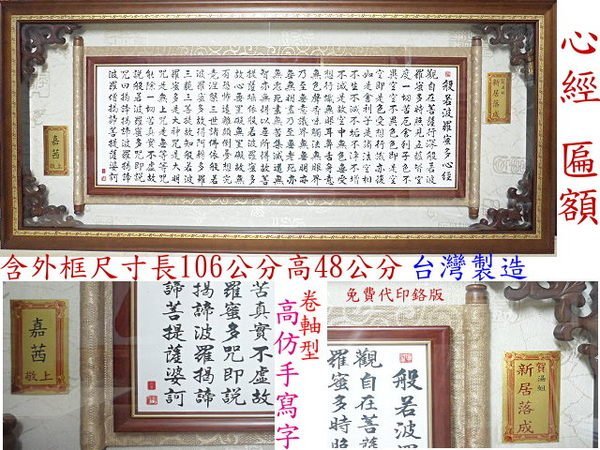 心經 匾額
賀 湯姐
新居落成
般若波羅蜜多心經
觀自在菩薩行深般若波
羅蜜多時照見五蘊皆空
度一切苦厄舍利子色不
異空空不異色色即是空
空即是色受想行識亦復
如是舍利子是諸法空相
不生不滅不垢不淨不增
不減是故空中無色無受
想行識無眼耳鼻舌身意
無色聲香味觸法無眼界
乃至無意識界無無明亦
無無明盡乃至無老死亦
無老死盡無苦集滅道無
智亦無得以無所得故菩
提薩埵依般若波羅蜜多
故心無罣礙無罣礙故無
有恐怖遠離顛倒夢想究
竟涅槃三世諸佛依般若
波羅蜜多故得阿耨多羅
三藐三菩提故知般若波
羅蜜多是大神咒是大明
咒是無上咒是無等等咒
能除一切苦真實不虛故
說般若波羅蜜多咒即說
咒曰揭諦揭諦波羅揭諦
波羅僧揭諦菩提薩婆訶
嘉茜 敬上
含外框尺寸長106公分高48公分 台灣製造
嘉茜
敬上
苦真實不虛故
羅蜜多咒即說
揭諦波羅揭諦
諦菩提薩婆訶
卷軸型
高仿手寫字
免費代印鉻版
般若波
觀自在菩
羅蜜多時
賀 湯姐
新居落成